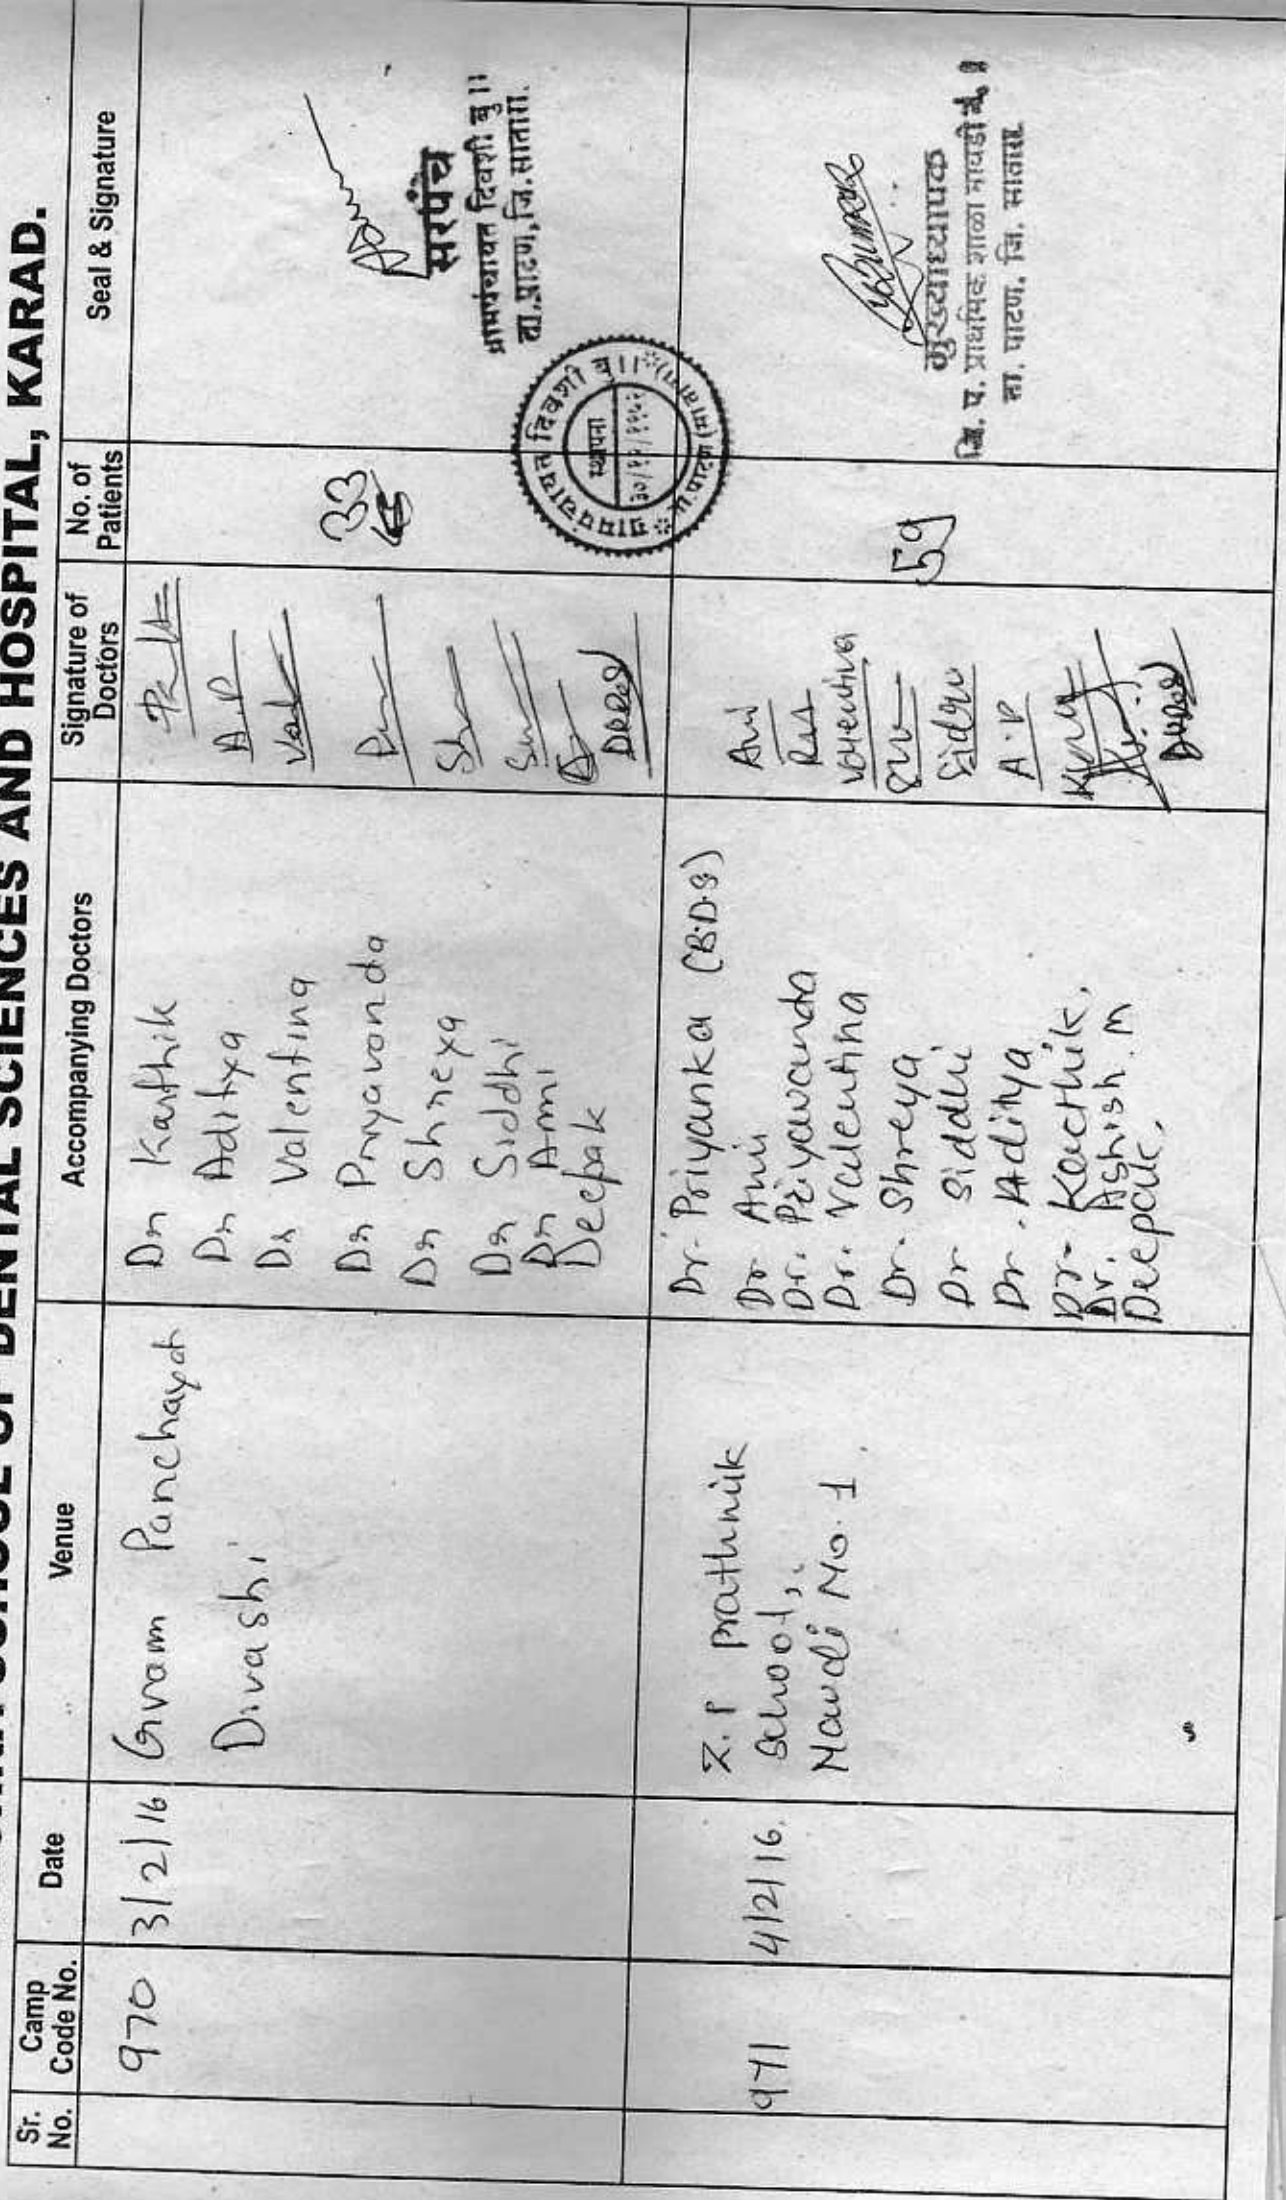 SCHOOL OF DENTAL SCIENCES AND HOSPITAL, KARAD.
Sr. No.
Camp Code No.
Date
Venue
Accompanying Doctors
Signature of Doctors
No. of Patients
Seal & Signature
970
3/2/16
Gram Panchayat
Divashi
Dr Karthik
Dr Aditya
Dr Valentina
Dr Priyavonda
Dr Shreya
Dr Siddhi
Dr Ami
Deepak
A.P
Val
Sh
Deepak
33
सरपंच
ग्रामपंचायत दिवशी बु ।।
ता.पाटण,जि.सातारा.
ग्रामपंचायत दिवशी बु ।।
स्थापना
971
4/2/16.
Z.P prathmik
School,
Navdi No. 1
Dr. Priyanka (B.D.S)
Dr Ami
Dr. Priyawanda
Dr. Valentina
Dr. Shreya
Dr Siddhi
Dr. Aditya
Dr- Karthik,
Dr. Ashish. M
Deepak,
Ami
Valentina
Siddhi
A.P
Deepak
59
मुख्याध्यापक
जि. प. प्राथमिक शाळा नावडी नं. १
ता. पाटण, जि. सातारा